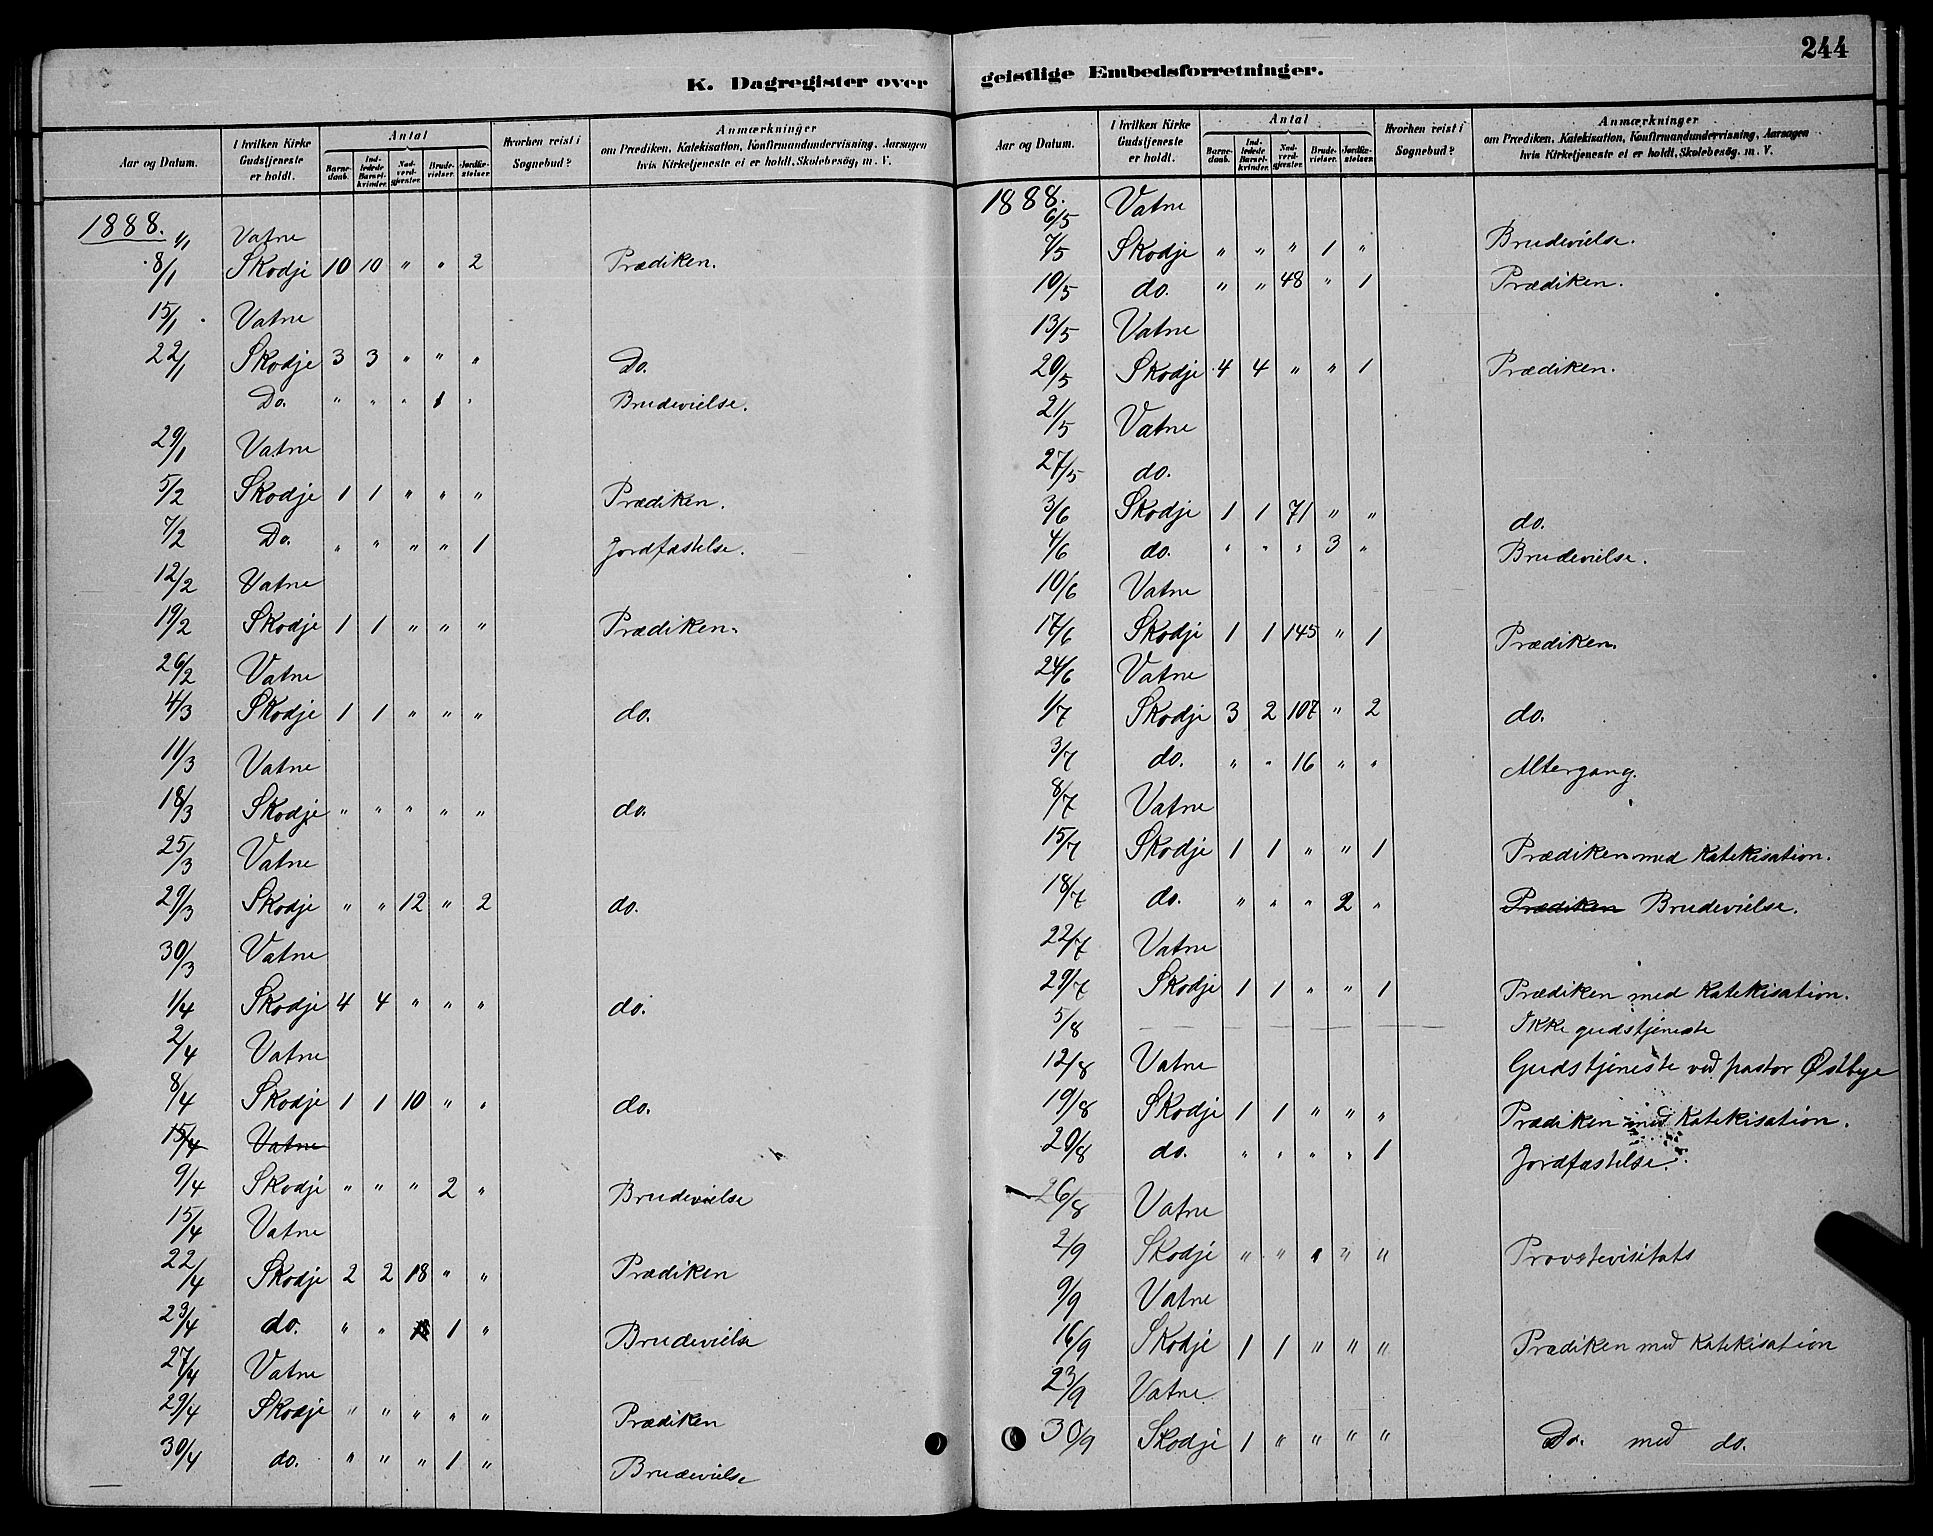 244
K. Dagregister over geistlige Embedsforretninger.
Aar og Datum. I hvilken Kirke Gudstjeneste er holdt. Antal Barnedaab. Indledede Barselkvinder. Nadverdgjester. Brudevielser. Jordfæstelser. Hvorhen reist i Sognebud? Anmærkninger om Prædiken, Katekisation, Konfirmandundervisning, Aarsagen hvis Kirketjeneste ei er holdt, Skolebesög, m. V.
1888. 1/1 Vatne
8/1 Skodje 10 10 " " 2 Prædiken.
15/1 Vatne
22/1 Skodje 3 3 " " " Do.
Do. " " " 1 " Brudevielse.
29/1 Vatne
5/2 Skodje 1 1 " " " Prædiken.
7/2 Do. " " " " 1 Jordfæstelse.
12/2 Vatne
19/2 Skodje 1 1 " " " Prædiken.
26/2 Vatne
4/3 Skodje 1 1 " " " do.
11/3 Vatne
18/3 Skodje " " " " " do.
25/3 Vatne
29/3 Skodje " " 12 " 2 do.
30/3 Vatne
1/4 Skodje 4 4 " " " do.
2/4 Vatne
8/4 Skodje 1 1 10 " " do.
15/4 Vatne
9/4 Skodje " " " 2 " Brudevielse
15/4 Vatne
22/4 Skodje 2 2 18 " " Prædiken
23/4 do. " " 1 " Brudevielse
27/4 Vatne
29/4 Skodje " " " " " Prædiken
30/4 do. " " " 1 " Brudevielse
Aar og Datum. I hvilken Kirke Gudstjeneste er holdt. Antal Barnedaab. Indledede Barselkvinder. Nadverdgjester. Brudevielser. Jordfæstelser. Hvorhen reist i Sognebud? Anmærkninger om Prædiken, Katekisation, Konfirmandundervisning, Aarsagen hvis Kirketjeneste ei er holdt, Skolebesög, m. V.
1888. 6/5 Vatne
7/5 Skodje " " " 1 " Brudevielse.
10/5 do. " " 48 " 1 Prædiken.
13/5 Vatne
20/5 Skodje 4 4 " " 1 Prædiken.
21/5 Vatne
27/5 do.
3/6 Skodje 1 1 71 " " do.
4/6 do. " " " 3 " Brudevielse.
10/6 Vatne
17/6 Skodje 1 1 145 " 1 Prædiken.
24/6 Vatne
1/7 Skodje 3 2 107 " 2 do.
3/7 do. " " 16 " " Altergang.
8/7 Vatne
15/7 Skodje 1 1 " " 1 Prædiken med Katekisation.
18/7 do. " " " 2 " Prædiken Brudevielse.
22/7 Vatne
29/7 Skodje 1 1 " " 1 Prædiken med Katekisation.
5/8 Ikke gudstjeneste
12/8 Vatne Gudstjeneste ved pastor Østbye
19/8 Skodje 1 1 " " " Prædiken med Katekisation.
20/8 do. " " " " 1 Jordfæstelse.
26/8 Vatne
2/9 Skodje " " " " " Provstevisitats
9/9 Vatne
16/9 Skodje 1 1 " " " Prædiken med Katekisation
23/9 Vatne
30/9 Skodje 1 " " " " Do. med do.